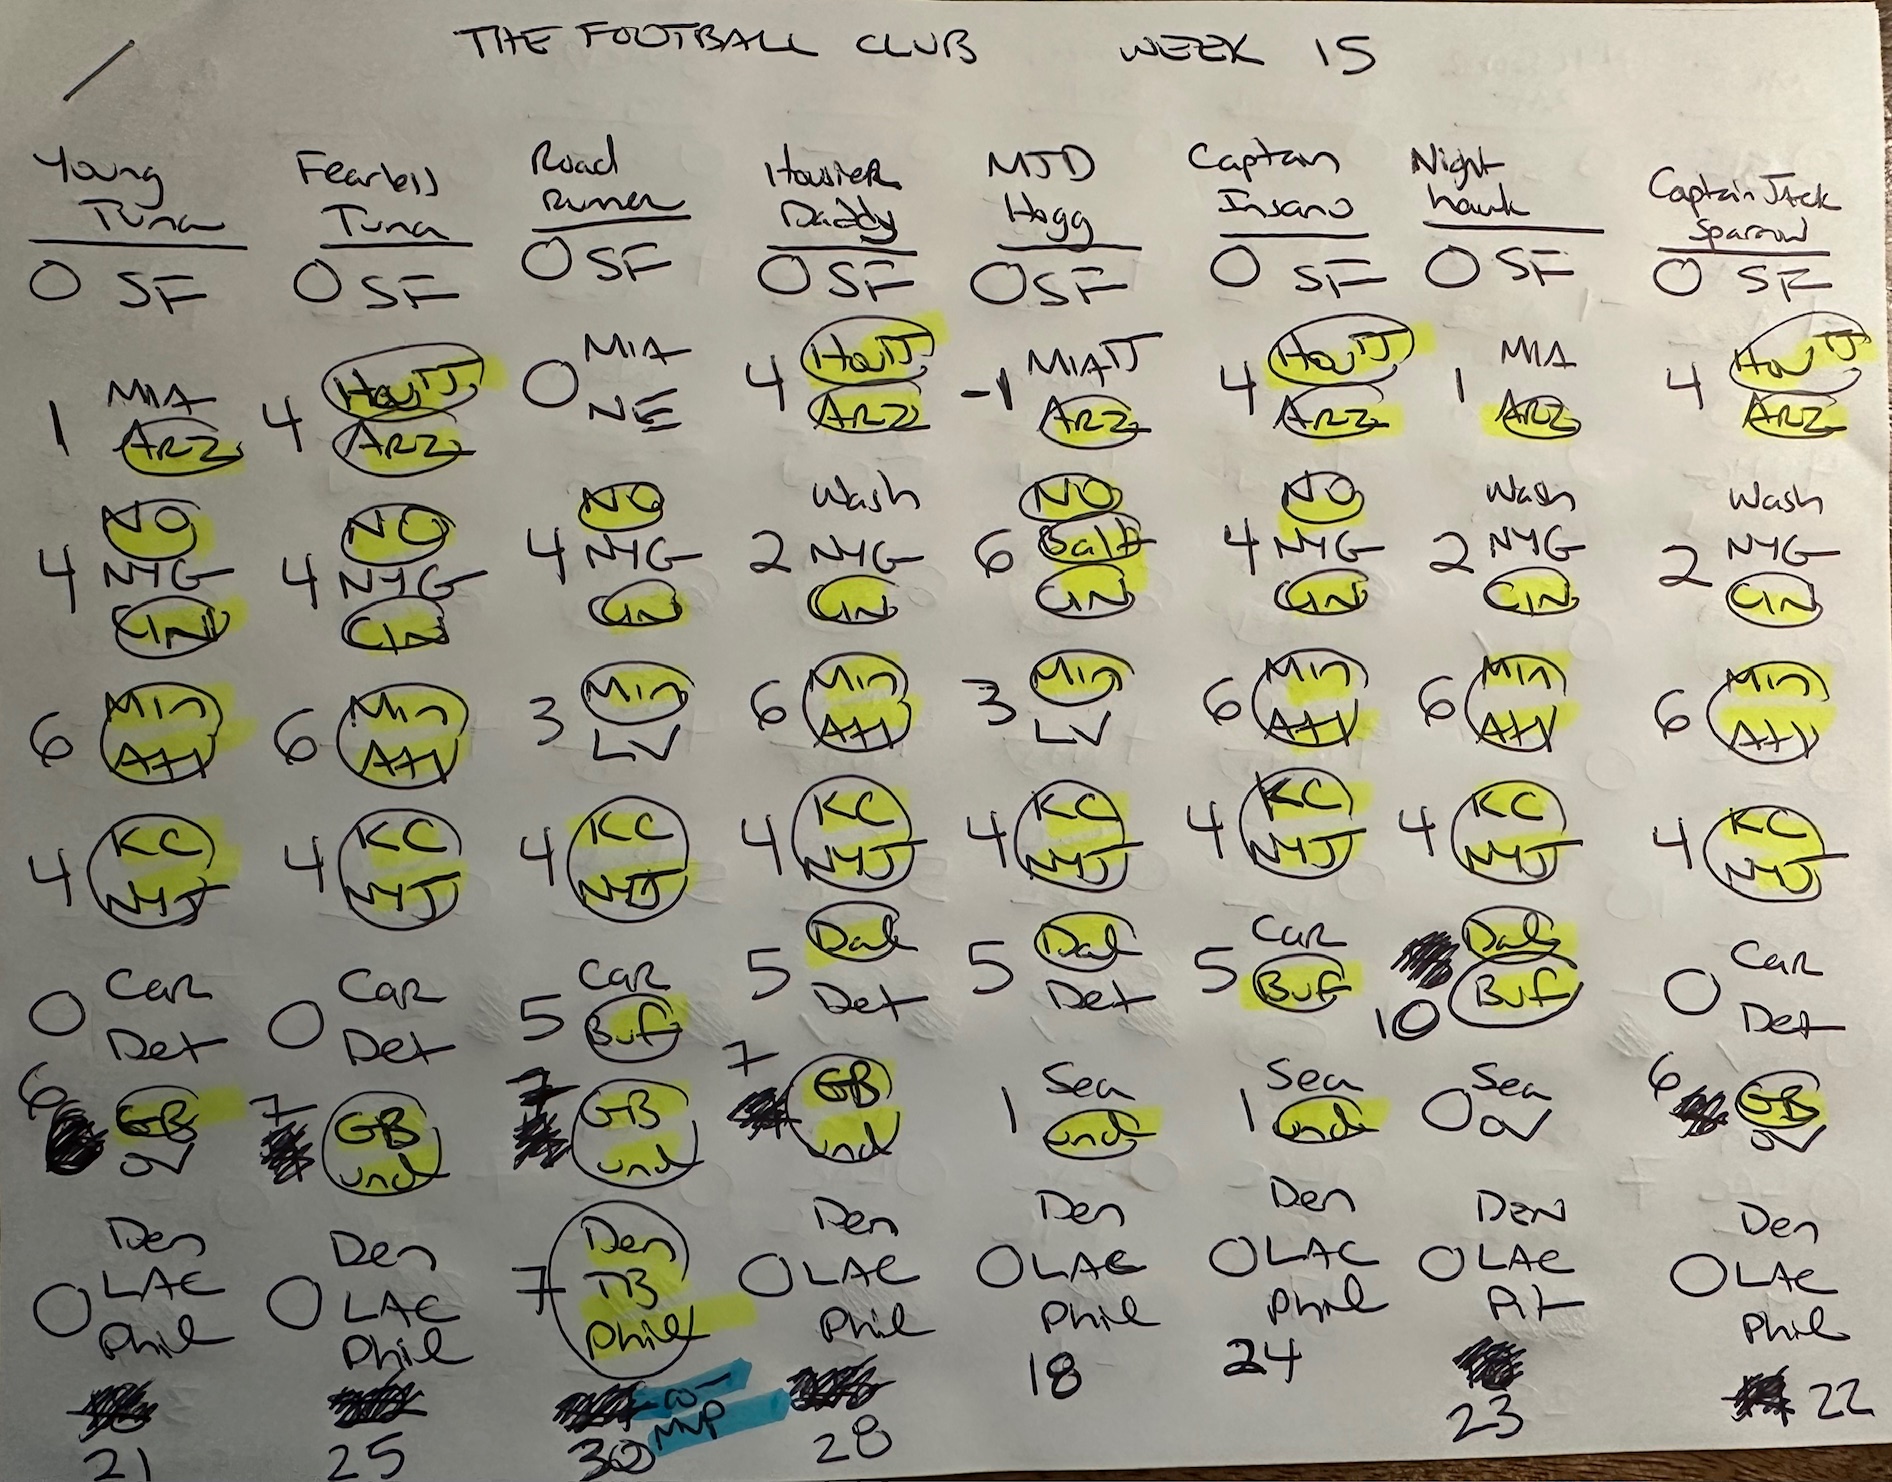 THE FOOTBALL CLUB WEEK 15
Young Tuna
0 SF
1 MIA
ARZ
4 NO
NYG
CIN
6 Min
Atl
4 KC
NYJ
0 Car
Det
6 GB
ov
0 Den
LAC
Phil
21
Fearless Tuna
0 SF
4 Hou TJ
ARZ
4 NO
NYG
CIN
6 Min
Atl
4 KC
NYJ
0 Car
Det
7 GB
und
0 Den
LAC
Phil
25
Road Runner
0 SF
0 MIA
NE
4 NO
NYG
CIN
3 Min
LV
4 KC
NYJ
5 Car
Buf
7 GB
und
7 Den
TB
Phil
30 co-MVP
Housier Daddy
0 SF
4 Hou TJ
ARZ
2 Wash
NYG
CIN
6 Min
Atl
4 KC
NYJ
5 Dal
Det
7 GB
und
0 Den
LAC
Phil
28
MJD Hogg
0 SF
-1 MIA TJ
ARZ
6 NO
Balt
CIN
3 Min
LV
4 KC
NYJ
5 Dal
Det
1 Sea
und
0 Den
LAC
Phil
18
Captain Insano
0 SF
4 Hou TJ
ARZ
4 NO
NYG
CIN
6 Min
Atl
4 KC
NYJ
5 Car
Buf
1 Sea
und
0 Den
LAC
Phil
24
Night hawk
0 SF
1 MIA
ARZ
2 Wash
NYG
CIN
6 Min
Atl
4 KC
NYJ
10 Dal
Buf
0 Sea
ov
0 DEN
LAC
Pit
23
Captain Jack Sparrow
0 SF
4 Hou TJ
ARZ
2 Wash
NYG
CIN
6 Min
Atl
4 KC
NYJ
0 Car
Det
6 GB
ov
0 Den
LAC
Phil
22